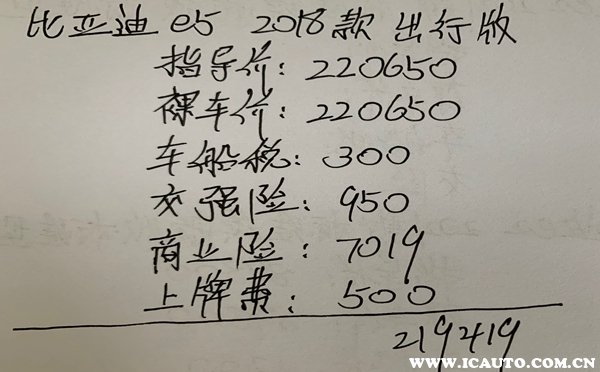 比亚迪 e5 2018款 出行版
指导价: 220650
裸车价: 220650
车船税: 300
交强险: 950
商业险: 7019
上牌费: 500
219419
WWW.ICAUTO.COM.CN